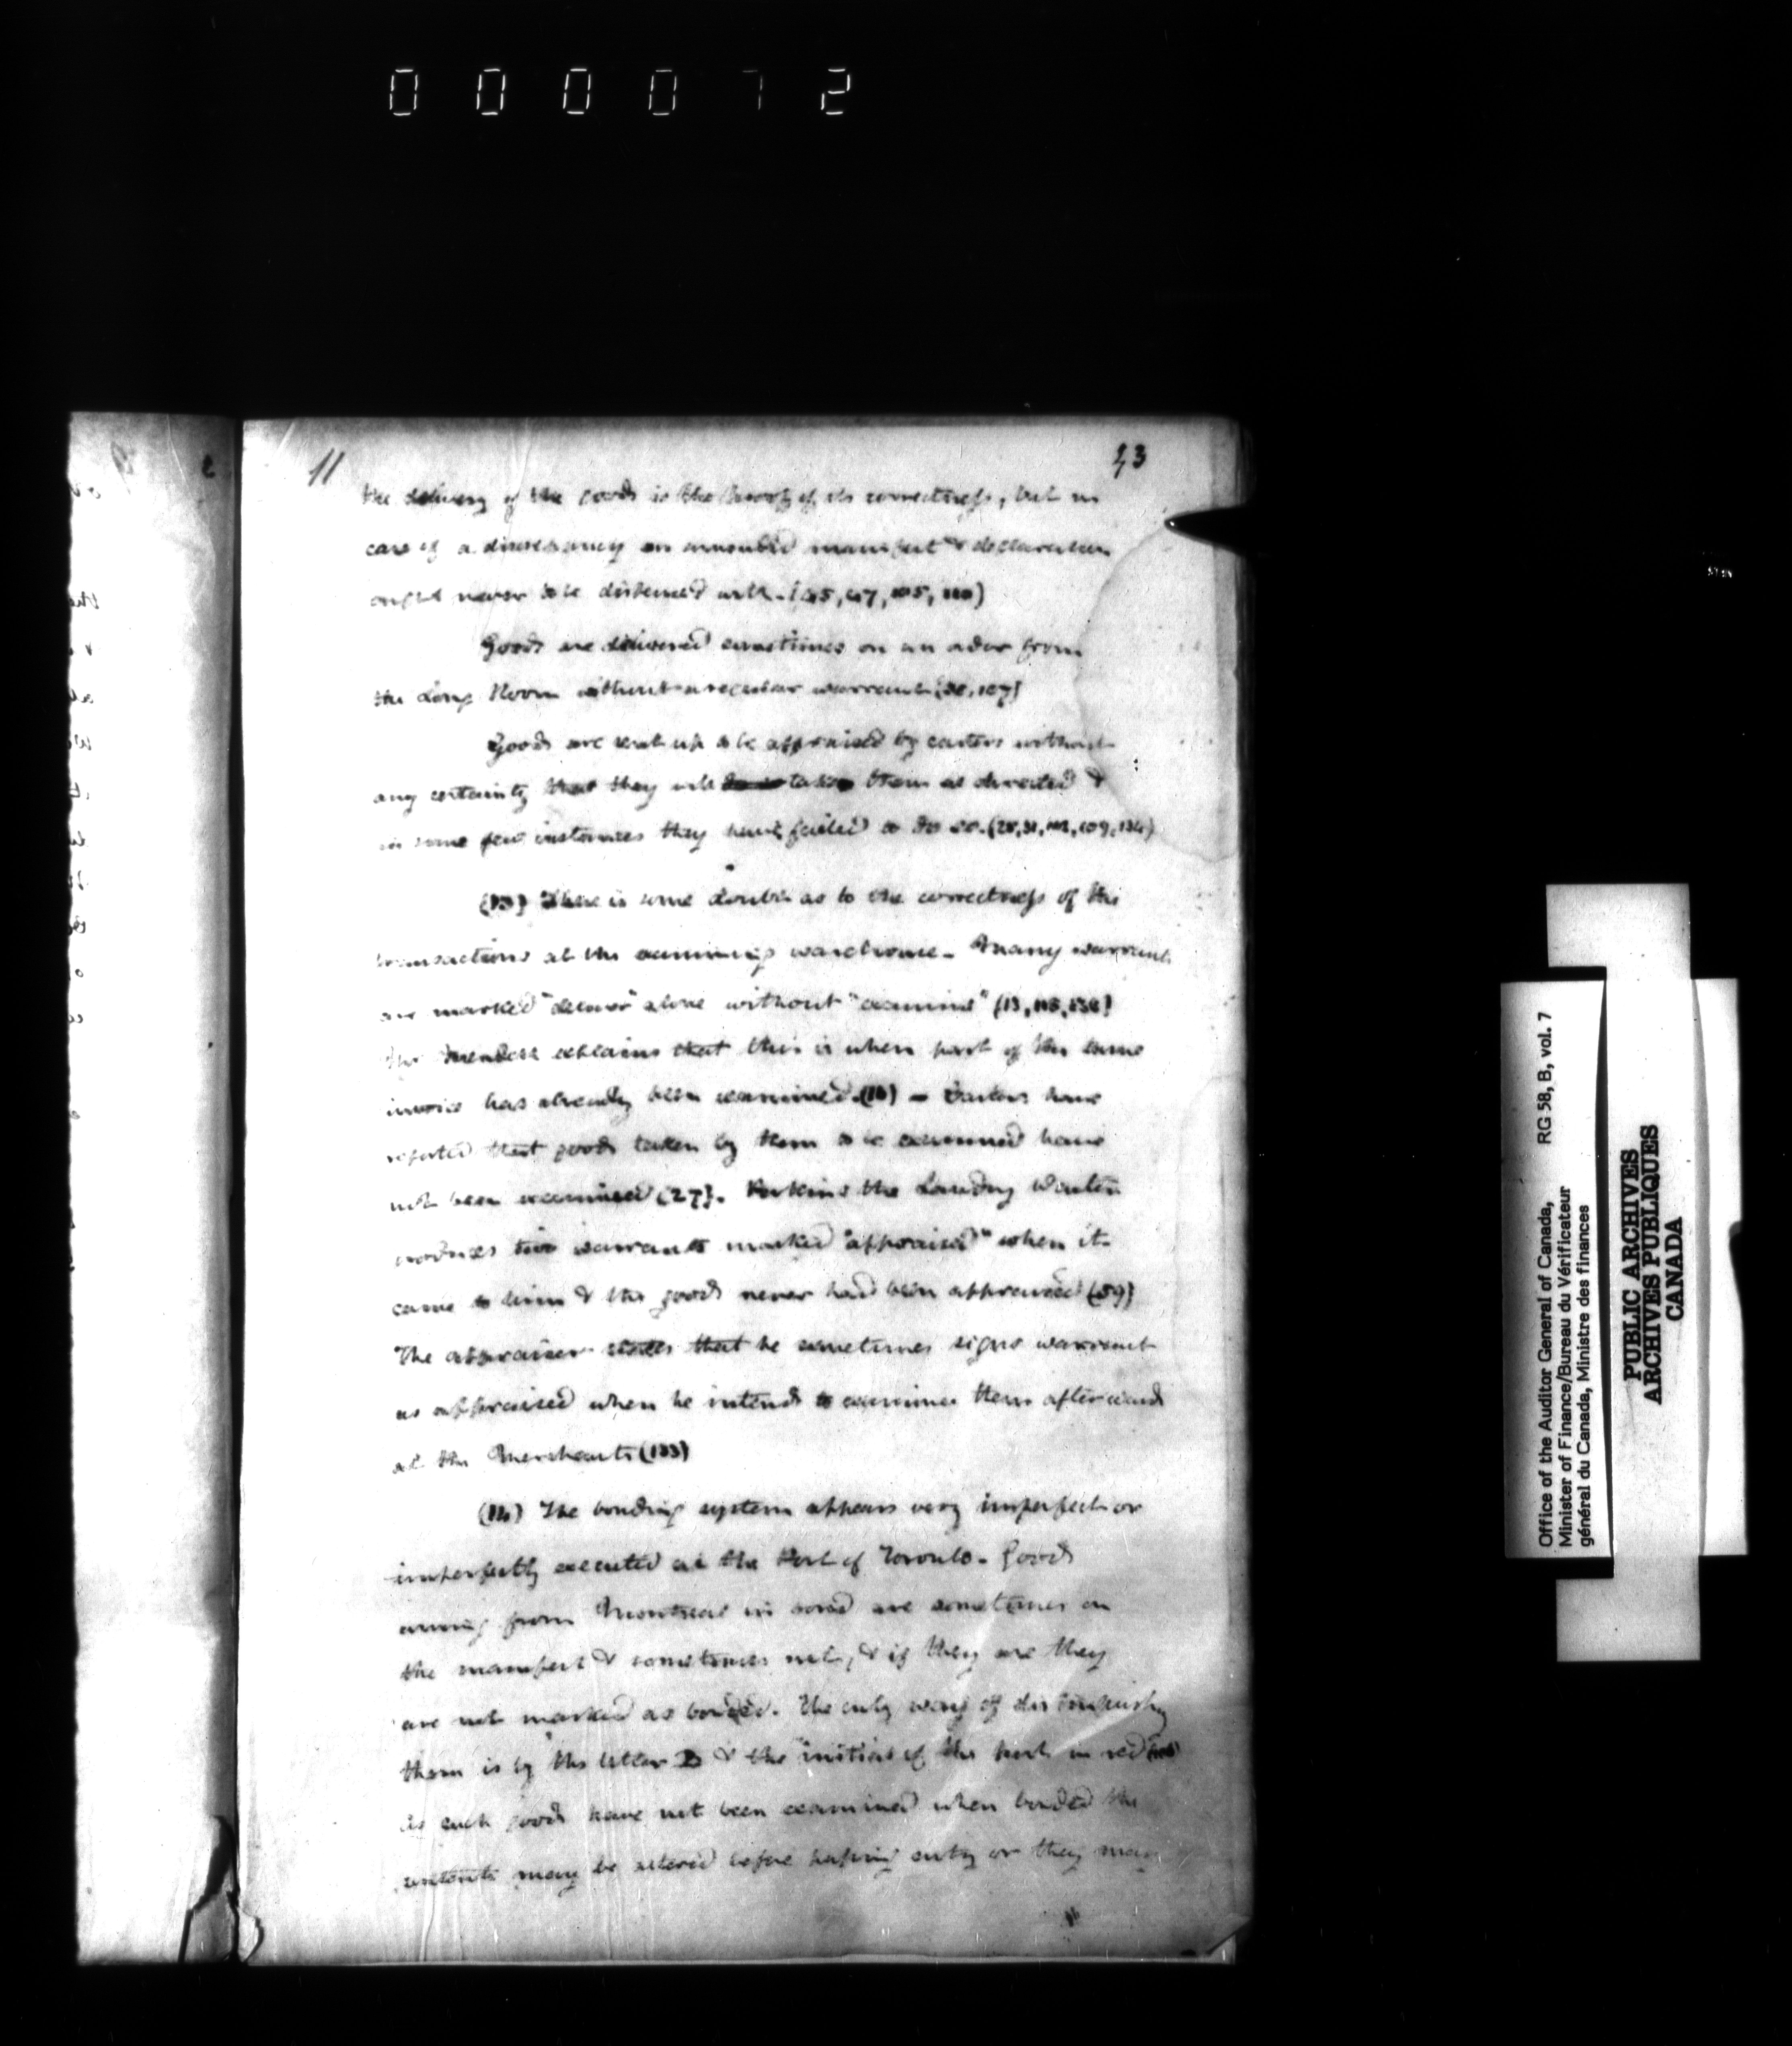 000072
11
43
the delivery of the goods is the proof of its correctness, but in
case of a discrepancy an amended manifest & declaration
ought never to be dispensed with. (45, 47, 105, 110)
Goods are delivered sometimes on an order from
the Long Room without a regular warrant (36, 107)
Goods are sent up to be appraised by carters without
any certainty that they will take them as directed &
in some few instances they have failed to do so. (28, 31, 102, 109, 134)
(13) There is some doubt as to the correctness of the
transactions at the examining warehouse. Many warrants
are marked "deliver" alone without "examine" (13, 118, 132)
explains that this is when part of the same
invoice has already been examined. (16) - Carters have
reported that goods taken by them to be examined have
not been examined (27). Perkins the Landing Waiter
produces two warrants marked "appraised" when it
came to him & the goods never had been appraised (59)
The appraiser states that he sometimes signs warrant
as appraised when he intends to examine them afterward
at the Merchants (133)
(14) The bonding system appears very imperfect or
imperfectly executed at the Port of Toronto. Goods
arriving from Montreal in bond are sometimes on
the manifest & sometimes not, & if they are they
are not marked as bonded. The only way of distinguishing
them is by the letter B & the initial of the port in red
As such goods have not been examined when bonded the
contents may be altered before passing entry or they may
Office of the Auditor General of Canada,
Minister of Finance/Bureau du Vérificateur
général du Canada, Ministre des finances
RG 58, B, vol. 7
PUBLIC ARCHIVES
ARCHIVES PUBLIQUES
CANADA